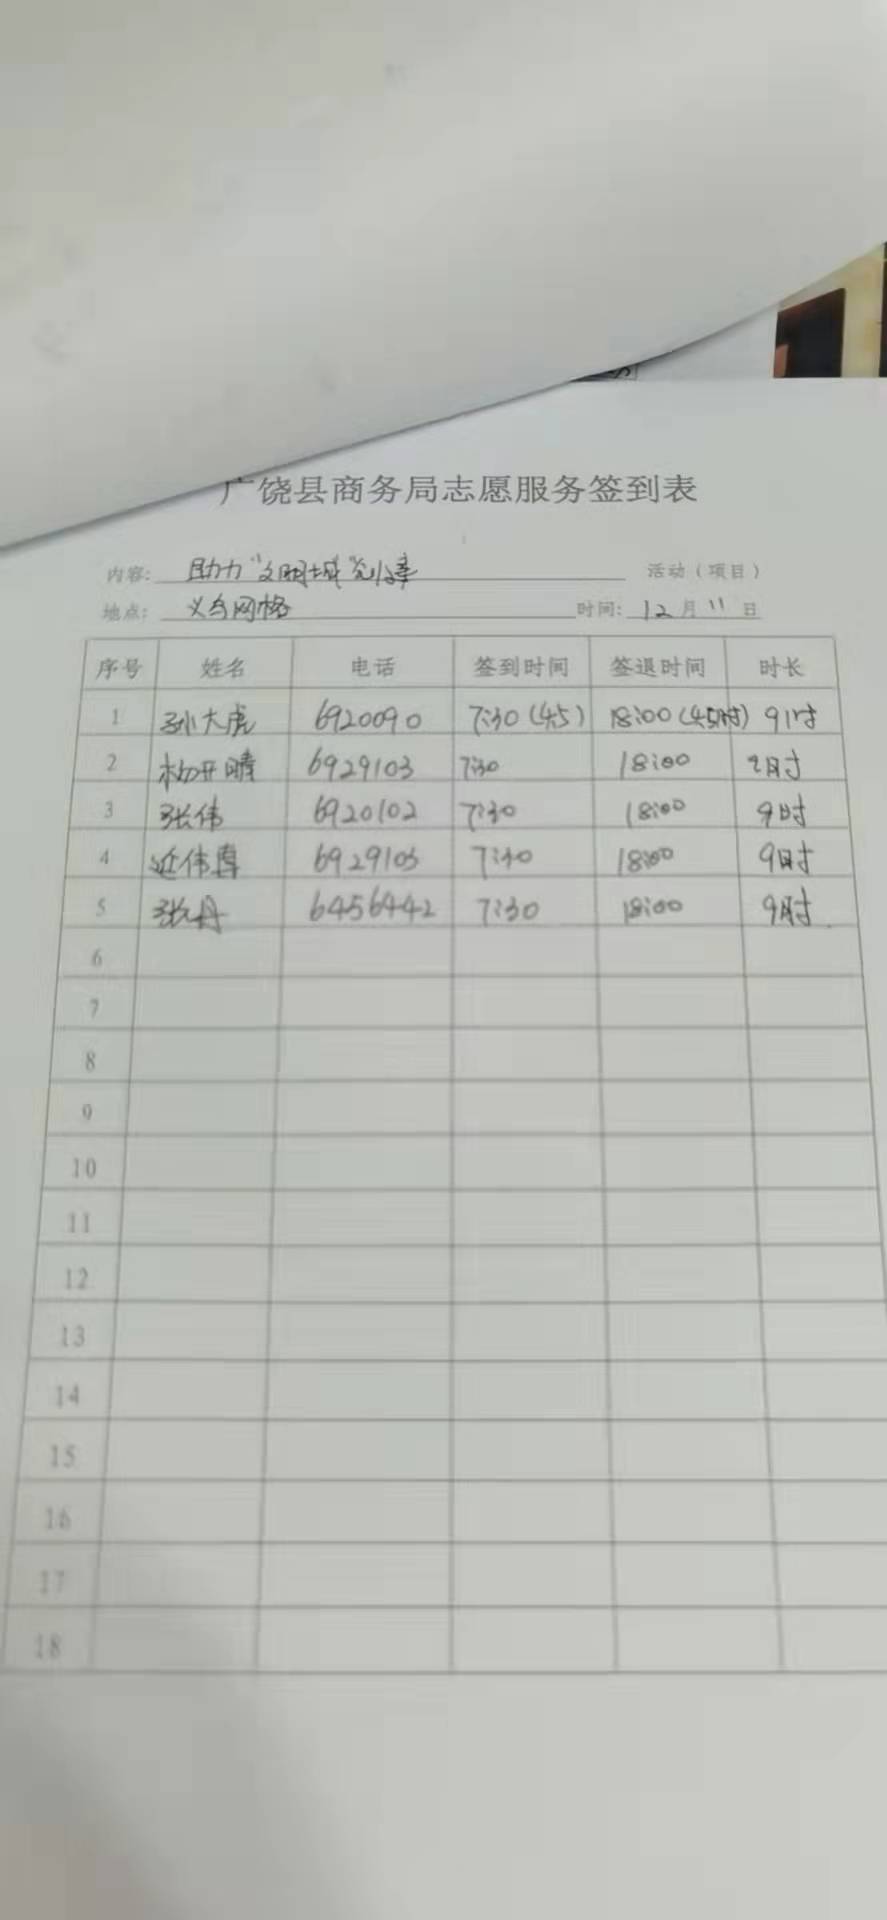 广饶县商务局志愿服务签到表
内容: 助力"文明城"创建 活动（项目）
地点: 义乌网格 时间: 12月11日
序号 姓名 电话 签到时间 签退时间 时长
1 孙大虎 6920090 7:30(4.5) 18:00(4.5时) 9小时
2 6929103 7:30 18:00 9时
3 张伟 6920102 7:30 18:00 9时
4 延伟 6929103 7:30 18:00 9时
5 张丹 6456442 7:30 18:00 9时
6
7
8
9
10
11
12
13
14
15
16
17
18